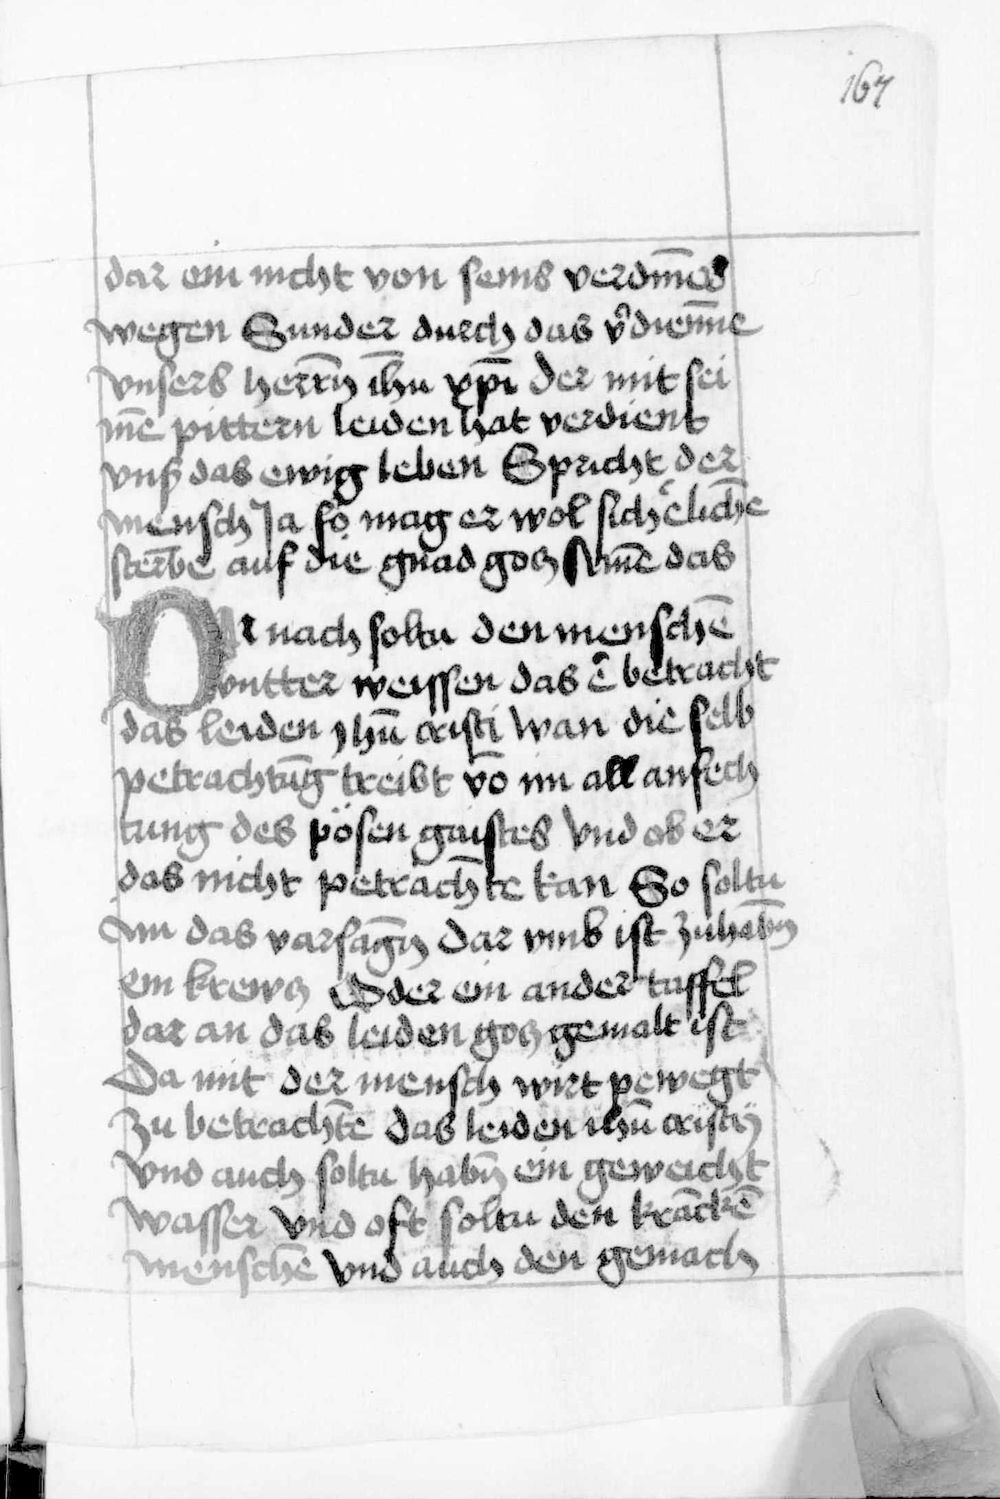 167
dar ein nicht von seins verdinẽs
wegen Sunder durch das v̾dienn̄e
vnsers herrn̄ ih̄u xp̄i der mit sei
m̄e pittern leiden hat verdient
vnß das ewig leben Spricht der
mensch Ja so mag er wol sich̾lich̄e
sterb̄e auf die gnad gocz Am̄e das
DAr nach soltu den mensch̄e
vntter weissen das e᷑ betracht
das leiden yhū cristi Wan die selb
petrachtūg treibt vō im all anfech
tung des pösen gaistes Vnd ob er
das nicht petracht̄e kan So soltu
im das varsagn̄ dar vmb ist zuhabn̄
ein krewcz Oder ein ander taffel
dar an das leiden gocz gemalt ist
Da mit der mensch wirt pewegt
Zu betracht̄e das leiden ihū cristÿ
Vnd auch soltu habn̄ ein geweicht
wasser Vnd oft soltu den krāckē
mensch̄e Vnd auch den gemach